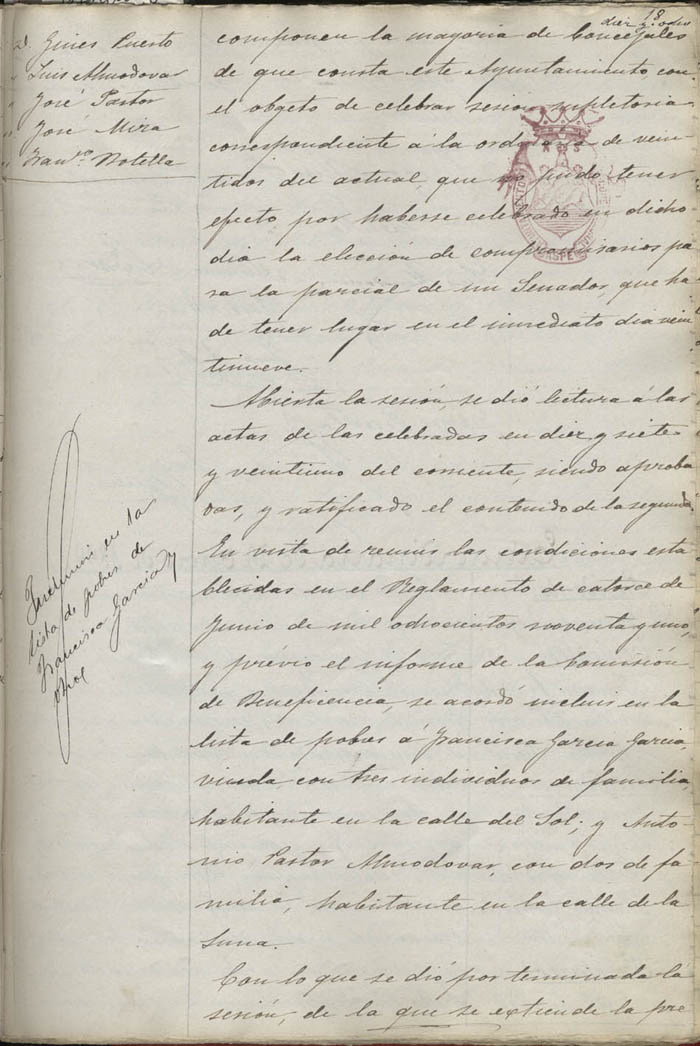 18
diez y ocho
D. Gines Puerto
" Luis Almodovar
" José Pastor
" José Mira
" Franco. Botella
componen la mayoria de Concejales
de que consta este Ayuntamiento con
el objeto de celebrar sesion supletoria
correspondiente á la ordinaria de vein-
tidos del actual, que no pudo tener
efecto por haberse celebrado en dicho
dia la elección de compromisarios pa
ra la parcial de un Senador, que ha
de tener lugar en el inmediato dia vein
tinueve.
Abierta la sesión, se dió lectura á las
actas de las celebradas en diez y siete
y veintiuno del corriente, siendo aproba
das, y ratificado el contenido de la segunda.
En vista de reunir las condiciones esta
blecidas en el Reglamento de catorce de
Junio de mil ochocientos noventa y uno,
y prévio el informe de la Comisión
de Beneficencia, se acordó incluir en la
lista de pobres á Francisca Garcia Garcia,
viuda con tres individuos de familia,
habitante en la calle del Sol; y Anto-
nio Pastor Almodovar, con dos de fa
milia, habitante en la calle de la
Luna.
Con lo que se dió por terminada la
sesión, de la que se extiende la pre
en la
lista de pobres de
Francisca Garcia y
otro